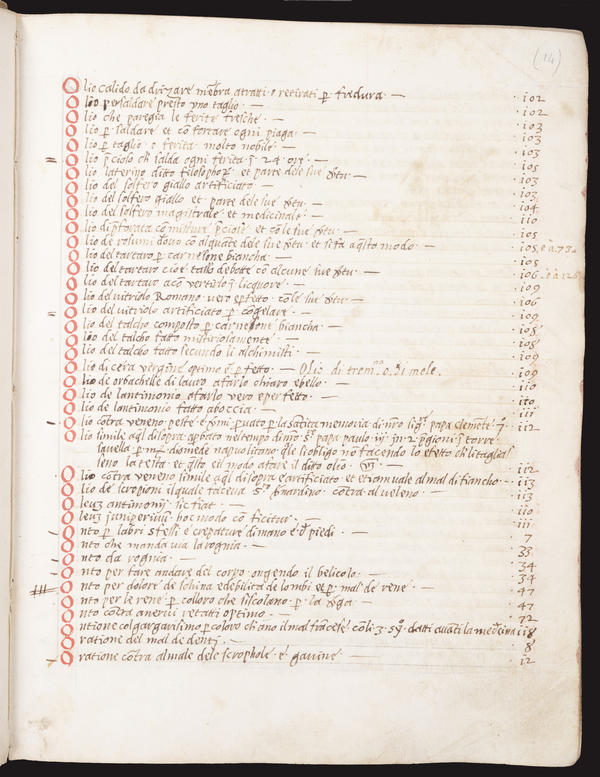 (14)
Olio calido da drizare mẽbra atratti o retirati p̲ fredura · — · 102
Olio per saldare presto vno taglio · — · 102
Olio che paregia le ferite fresche · — · 103
Olio p̲ saldare et cõfortare ogni piaga · — · 103
Olio p̲ taglio o ferita molto nobile · — · 103
Olio p̲cioso ch̃ salda ogni ferita ĩ 24 ori · — · 105
Olio laterino ditto filosophoꝝ et parte dele sue v̾tu · — · 103
Olio del solfero giallo artificiato · — · 103
Olio del solfero giallo et parte dele sue v̾tu · — · 104
Olio del solfero magistrale et medicinale · — · 110
Olio di · cõ mistura p̲ciose et cõ le sue v̾tu · — · 105
Olio de rosumi douo cõ alquãte dele sue v̾tu · et si fa a q̃sto modo · — · 105 · e a · 73 ·
Olio del tartaro p̲ carnesone biancha · — · 105
Olio del tartaro cioe debote cõ alcune sue v̾tu · — · 106 · e a 126
Olio del tartaro acõuertirlo ĩ licquore · — · 109
Olio del vitriolo Romano vero p̲fetto cõ le sue v̾tu — · 106
Olio del vitriolo artificiato p̲ cõgelare · — · 109
Olio del talcho composto p̲ carnesone biancha · — · 108
Olio del talcho fatto misteriolamente · — · 108
Olio del talcho fatto secundo li alchimisti · — · 109
Olio di cera vergine optimo et p̲fetto · — Olio di trem.ᵃ o di mele · · 109
Olio de orbachelle di lauro afarlo chiaro e bello · — · 110
Olio de lantimonio afarlo vero e perfetto · — · 110
Olio de lantimonio fatto aboccia · — · 111
Olio cõtra veneno peste e p̲uato p̲ la sãtita memoria di nr̃o sig.ʳ papa clemẽte · 7 · · 112
Olio simile aql̃ disopra apbato nel tempo di nr̃o S.ʳ papa paulo iij · in 2 p̲gioni ĩ torre
sauella p̲ m.º diomede napulitano q̃le
leno la testa · et q̃sto e il modo afare il ditto olio · · 112
Olio cõtra veneno simile aql̃ disopra e artificiato et etiam uale al mal di fiancho · — · 113
Olio de scropioni il quale faceua S.ʳ bernardino cõtra al veleno · — · 113
Oleuz antimonij sic fiat · — · 110
Oleuz juniperinũ hoc modo cõficitur · — · 111
Onto p̲ labri e crepature di mano e d̾ piedi · — · 7
Onto che manda via la rognia · — · 33
Onto da rognia · — · 34
Onto per fare andare del corpo ongendo il belicolo · — · 34
Onto per dolore de schina e debilita de lombi et p̲ mal de rene · — · 47
Onto per le rene p̲ colloro che si scolano p̲ la v̾ga · — · 47
Onto cõtra anerui retratti optimo · — · 72
Ontione p̲ coloro ch̃ ano il mal francese cõ li 3 datti auanti la medicina · 118
Oratione del mal de denti · — · 8
Oratione cõtra al male dele scrophole e gauine · — · 12